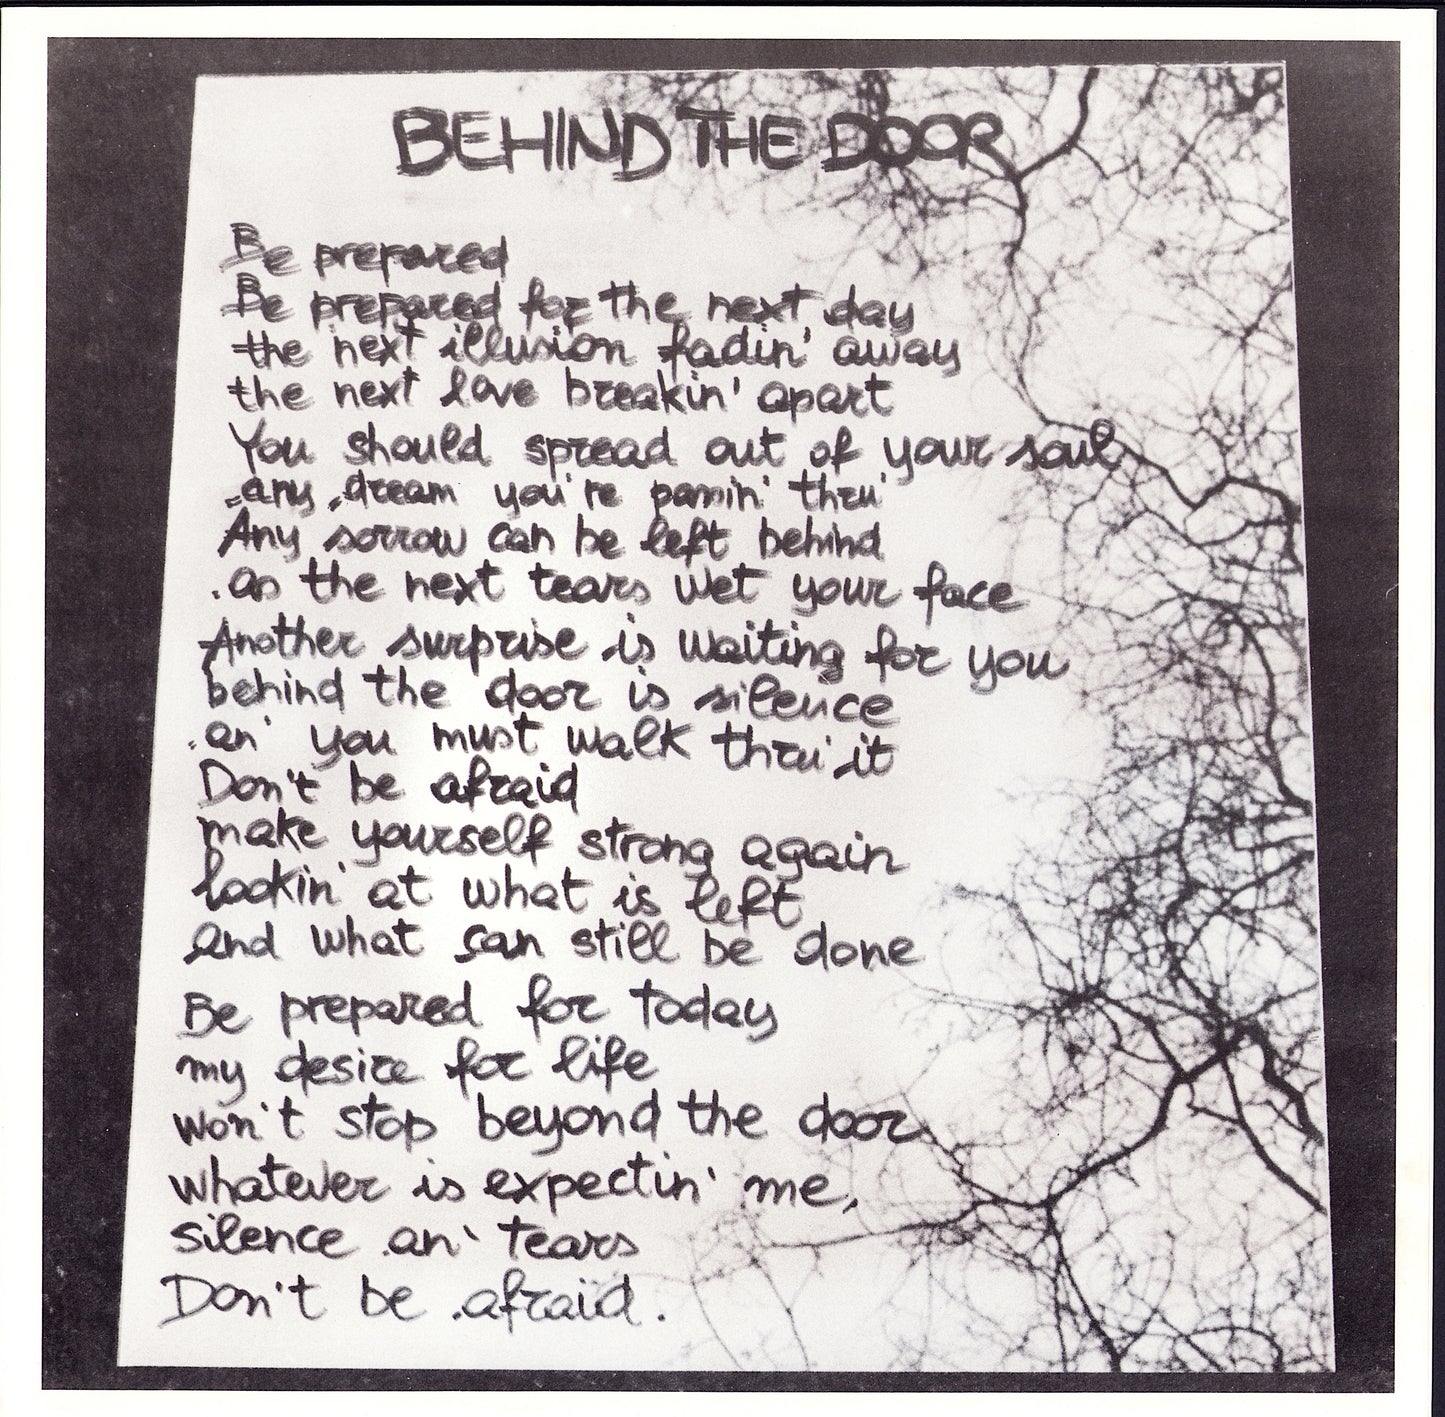 BEHIND THE DOOR
Be prepared
Be prepared for the next day
the next illusion fadin' away
the next love breakin' apart
You should spread out of your soul
any dream you're passin' thru'
Any sorrow can be left behind
as the next tears wet your face
Another surprise is waiting for you
behind the door is silence
an' you must walk thru' it
Don't be afraid
make yourself strong again
lookin' at what is left
and what can still be done
Be prepared for today
my desire for life
won't stop beyond the door
whatever is expectin' me,
silence an' tears
Don't be afraid.